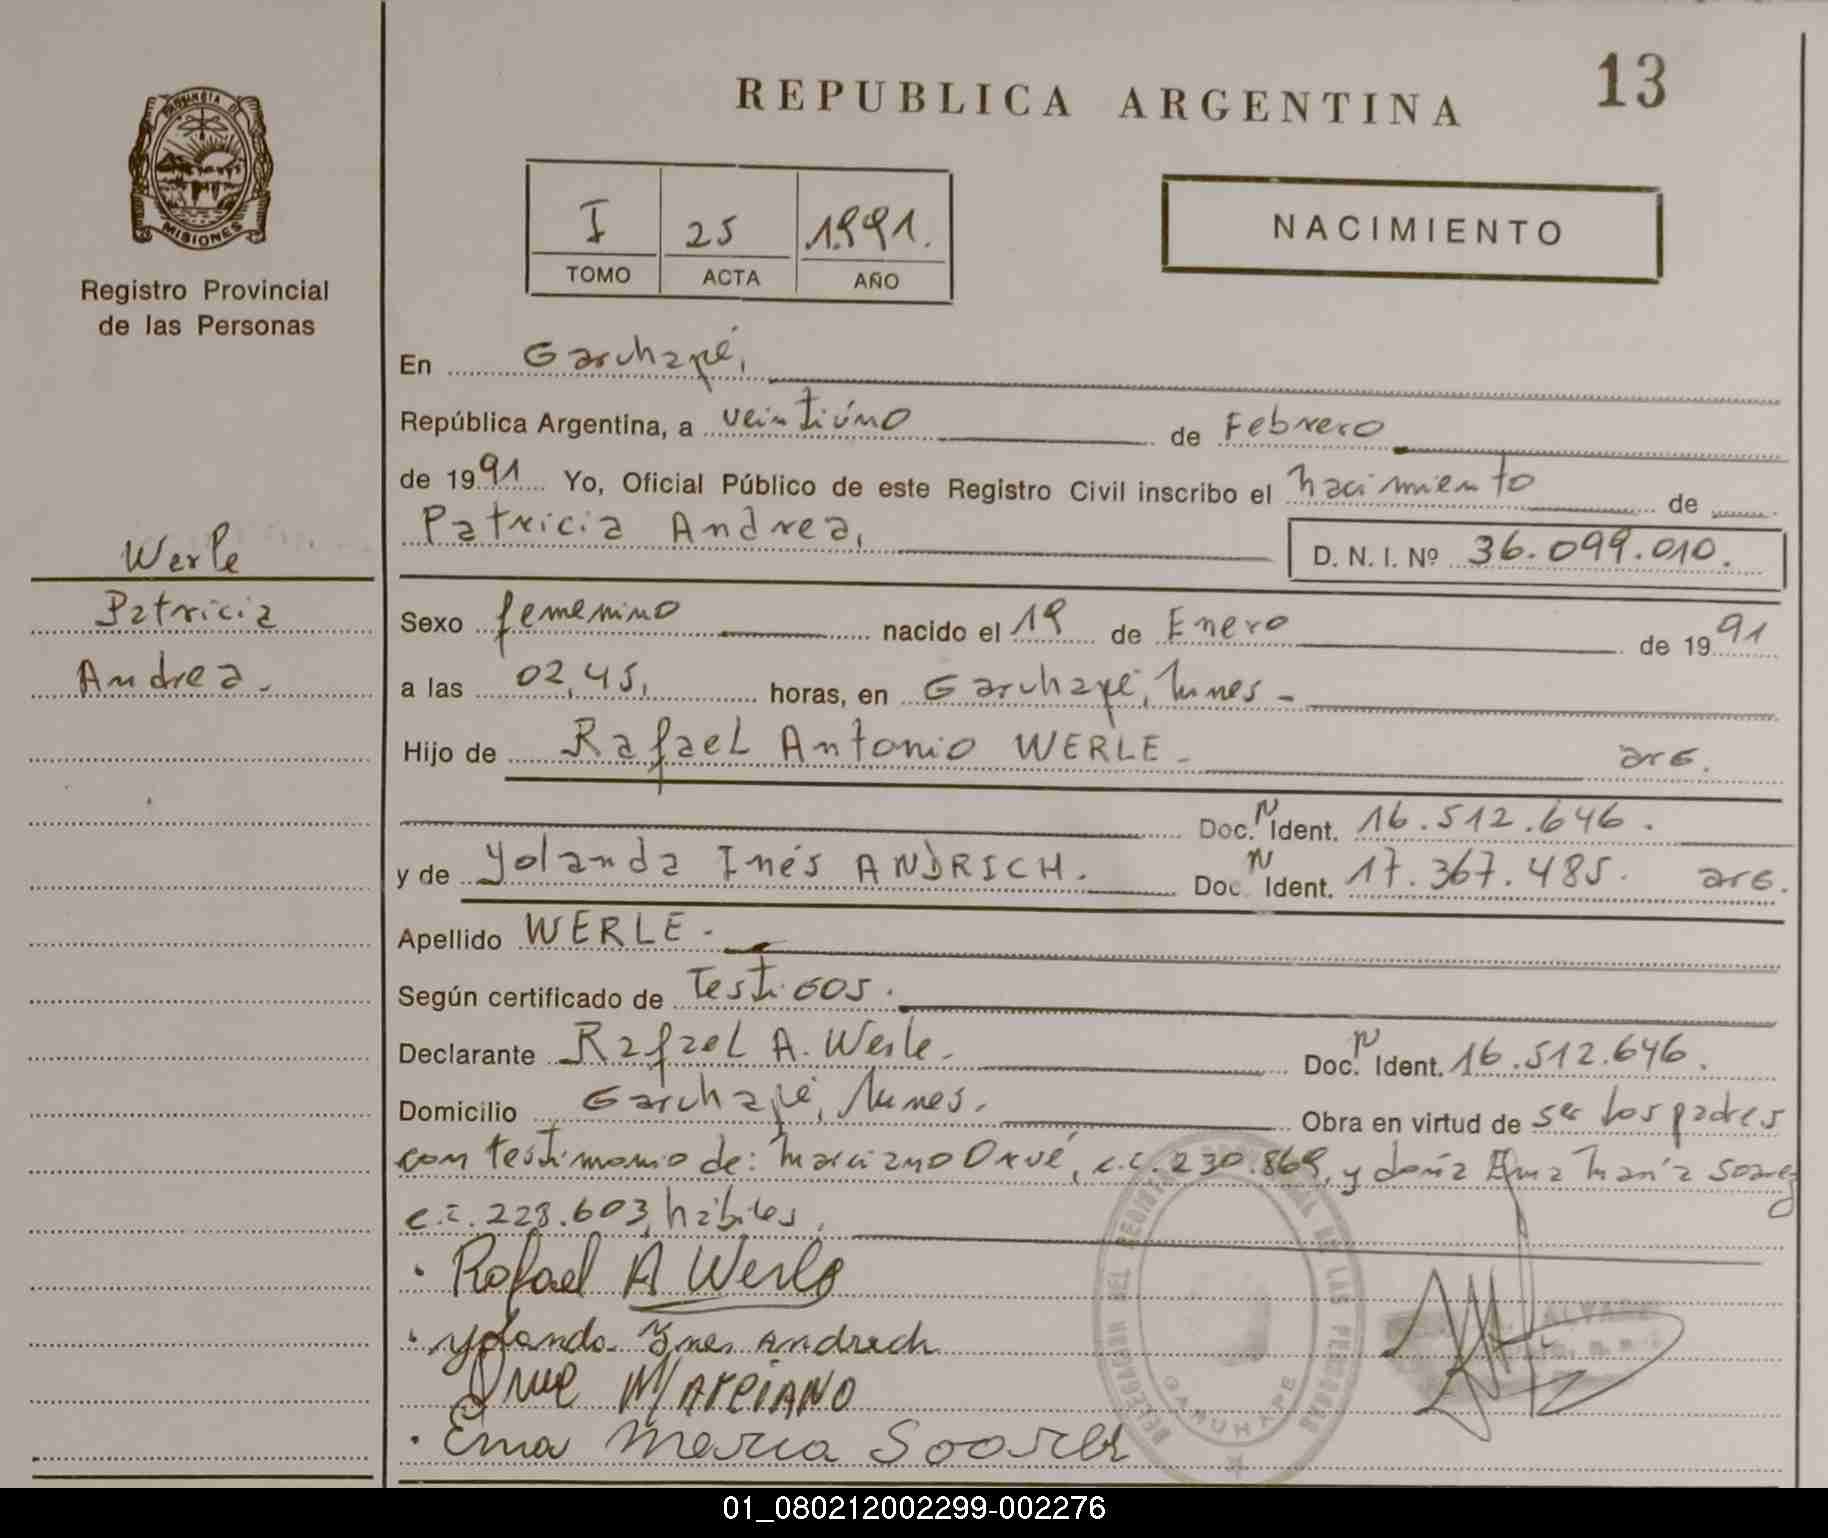 REPUBLICA ARGENTINA
13
PROVINCIA DE
MISIONES
Registro Provincial
de las Personas
I 25 1991.
TOMO ACTA AÑO
NACIMIENTO
En Garuhapé,
República Argentina, a veintiúno de Febrero
de 1991 Yo, Oficial Público de este Registro Civil inscribo el nacimiento de
Patricia Andrea,
D. N. I. Nº 36.099.010.
Werle
Patricia
Andrea.
Sexo femenino nacido el 19 de Enero de 1991
a las 02,45, horas, en Garuhapé, Mnes-
Hijo de Rafael Antonio WERLE- arg.
Doc. N Ident. 16.512.646.
y de Yolanda Inés ANDRICH. Doc. N Ident. 17.367.485. arg.
Apellido WERLE-
Según certificado de Testigos.
Declarante Rafael A. Werle. Doc. N Ident. 16.512.646.
Domicilio Garuhapé, Mnes. Obra en virtud de ser los padres
con testimonio de: Marciano Orué, c.i. 230.869, y doña Ema María Soarez
c.i. 228.603, hábiles,
Rafael A Werle
Yolanda Ynes Andrich
Orue MARCIANO
Ema Maria Soarez
DELEGACION DEL REGISTRO PROVINCIAL DE LAS PERSONAS
GARUHAPE
ALVAREZ
01_080212002299-002276